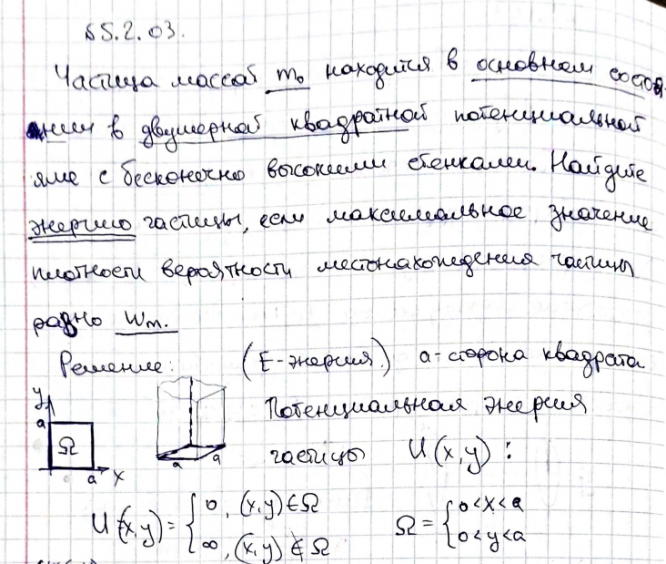 §5.2.03.
Частица массой m₀ находится в основном состоя-
нии в двумерной квадратной потенциальной
яме с бесконечно высокими стенками. Найдите
энергию частицы, если максимальное значение
плотности вероятности местонахождения частицы
равно Wm.
Решение: (E-энергия) a-сторона квадрата
y a Ω a x
a a
Потенциальная энергия
частицы U(x,y):
U(x,y) = { 0, (x,y)∈Ω
∞, (x,y)∉Ω
Ω = { 0<x<a
0<y<a